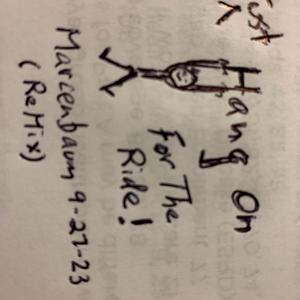 Just
Hang On
For The
Ride!
Marcenbaum 9-27-23
(ReMix)